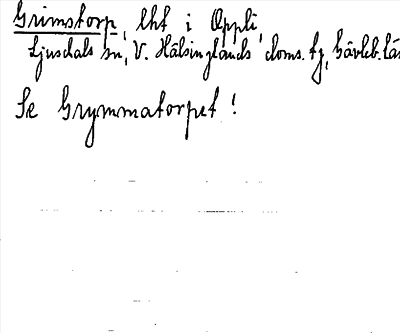 Grimstorp, lht i Öppli,
Ljusdals sn, V. Hälsinglands doms. tg, Gävleb. lä
Se Grymmatorpet!